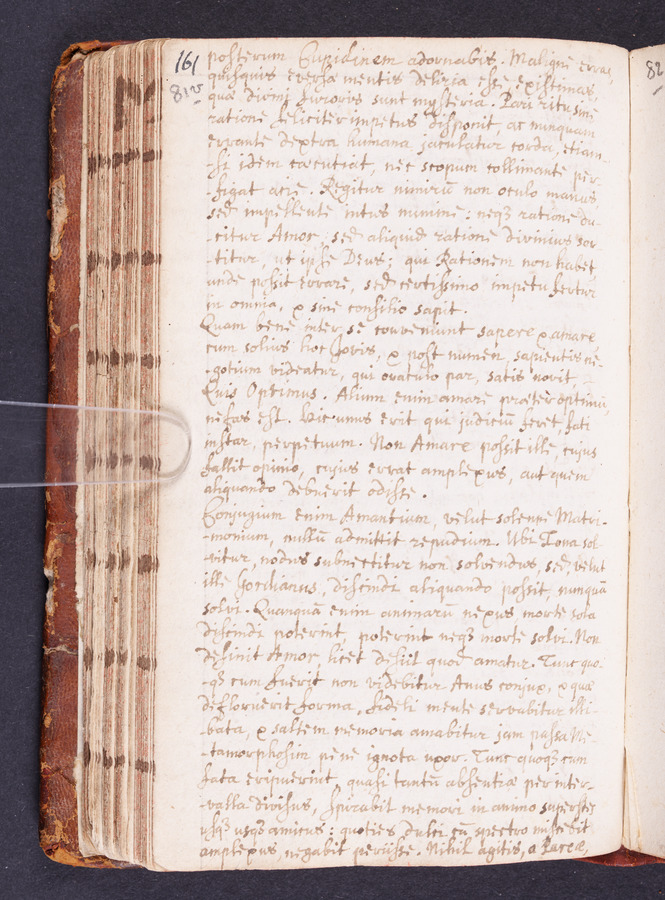 161
81v
82
posterum Cupidinem adornabis. Maligni erroris,
quisquis eversæ mentis deliria esse existimas,
quæ divini furoris sunt mysteria. Pari ritu sine
ratione feliciter impetus disponit, ac nunquam
errante dextra humana jaculatur corda, etiam-
-si idem cæcutiat, nec scopum collimante per-
-figat acie. Regitur nimirũ non oculo manus,
sed impellente intus numine: neqꝫ ratione du-
-citur Amor, sed aliquid ratione divinius sor-
-titur, ut ipse Deus; qui Rationem non habet,
unde possit errare, sed certissimo impetu fertur
in omnia, & sine consilio sapit.
Quam bene inter se conveniunt sapere & amare
cum solius hoc Jovis, & post numen, sapientis ne-
-gotium videatur, qui oraculo par, satis novit,
Quis Optimus. Alium enim amare præter optimũ,
nefas est. Hic unus erit qui judiciũ feret, fati
instar, perpetuum. Non Amare possit ille, cujus
fallit opinio, cujus errat amplexus, aut quem
aliquando debuerit odisse.
Conjugium enim Amantium, velut solenne Matri-
-monium, nullũ admittit repudium. Ubi Zona sol-
-vitur, nodus subnectitur non solvendus, sed, velut
ille Gordianus, discindi aliquando possit, nunquã
solvi. Quanquã enim animarũ nexus morte sola
discindi poterint, poterint neqꝫ morte solvi. Non
desinit Amor, licet desiit quod amatur. Tunc quo-
-qꝫ cum fuerit non videbitur Anus conjux, & quæ
defloruerit forma, fideli mente servabitur illi-
-bata, & saltem memoria amabitur jam passa Me-
-tamorphosin pene ignota uxor. Tunc quoqꝫ cum
fata eripuerint, quasi tantũ absentiæ per inter-
-valla divisus, spirabit memori in animo superstes
usqꝫ usqꝫ amicus: quoties dulci cũ spectro miscebit
amplexus, negabit periisse. Nihil agitis, o Parcæ,